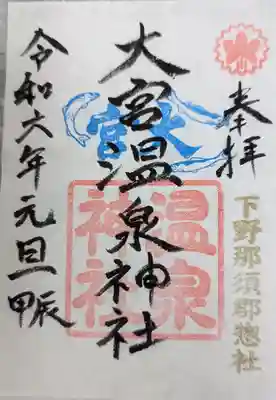 奉拝
下野那須郡惣社
大宮温泉神社
大宮
温泉
神社
令和六年元旦
甲辰